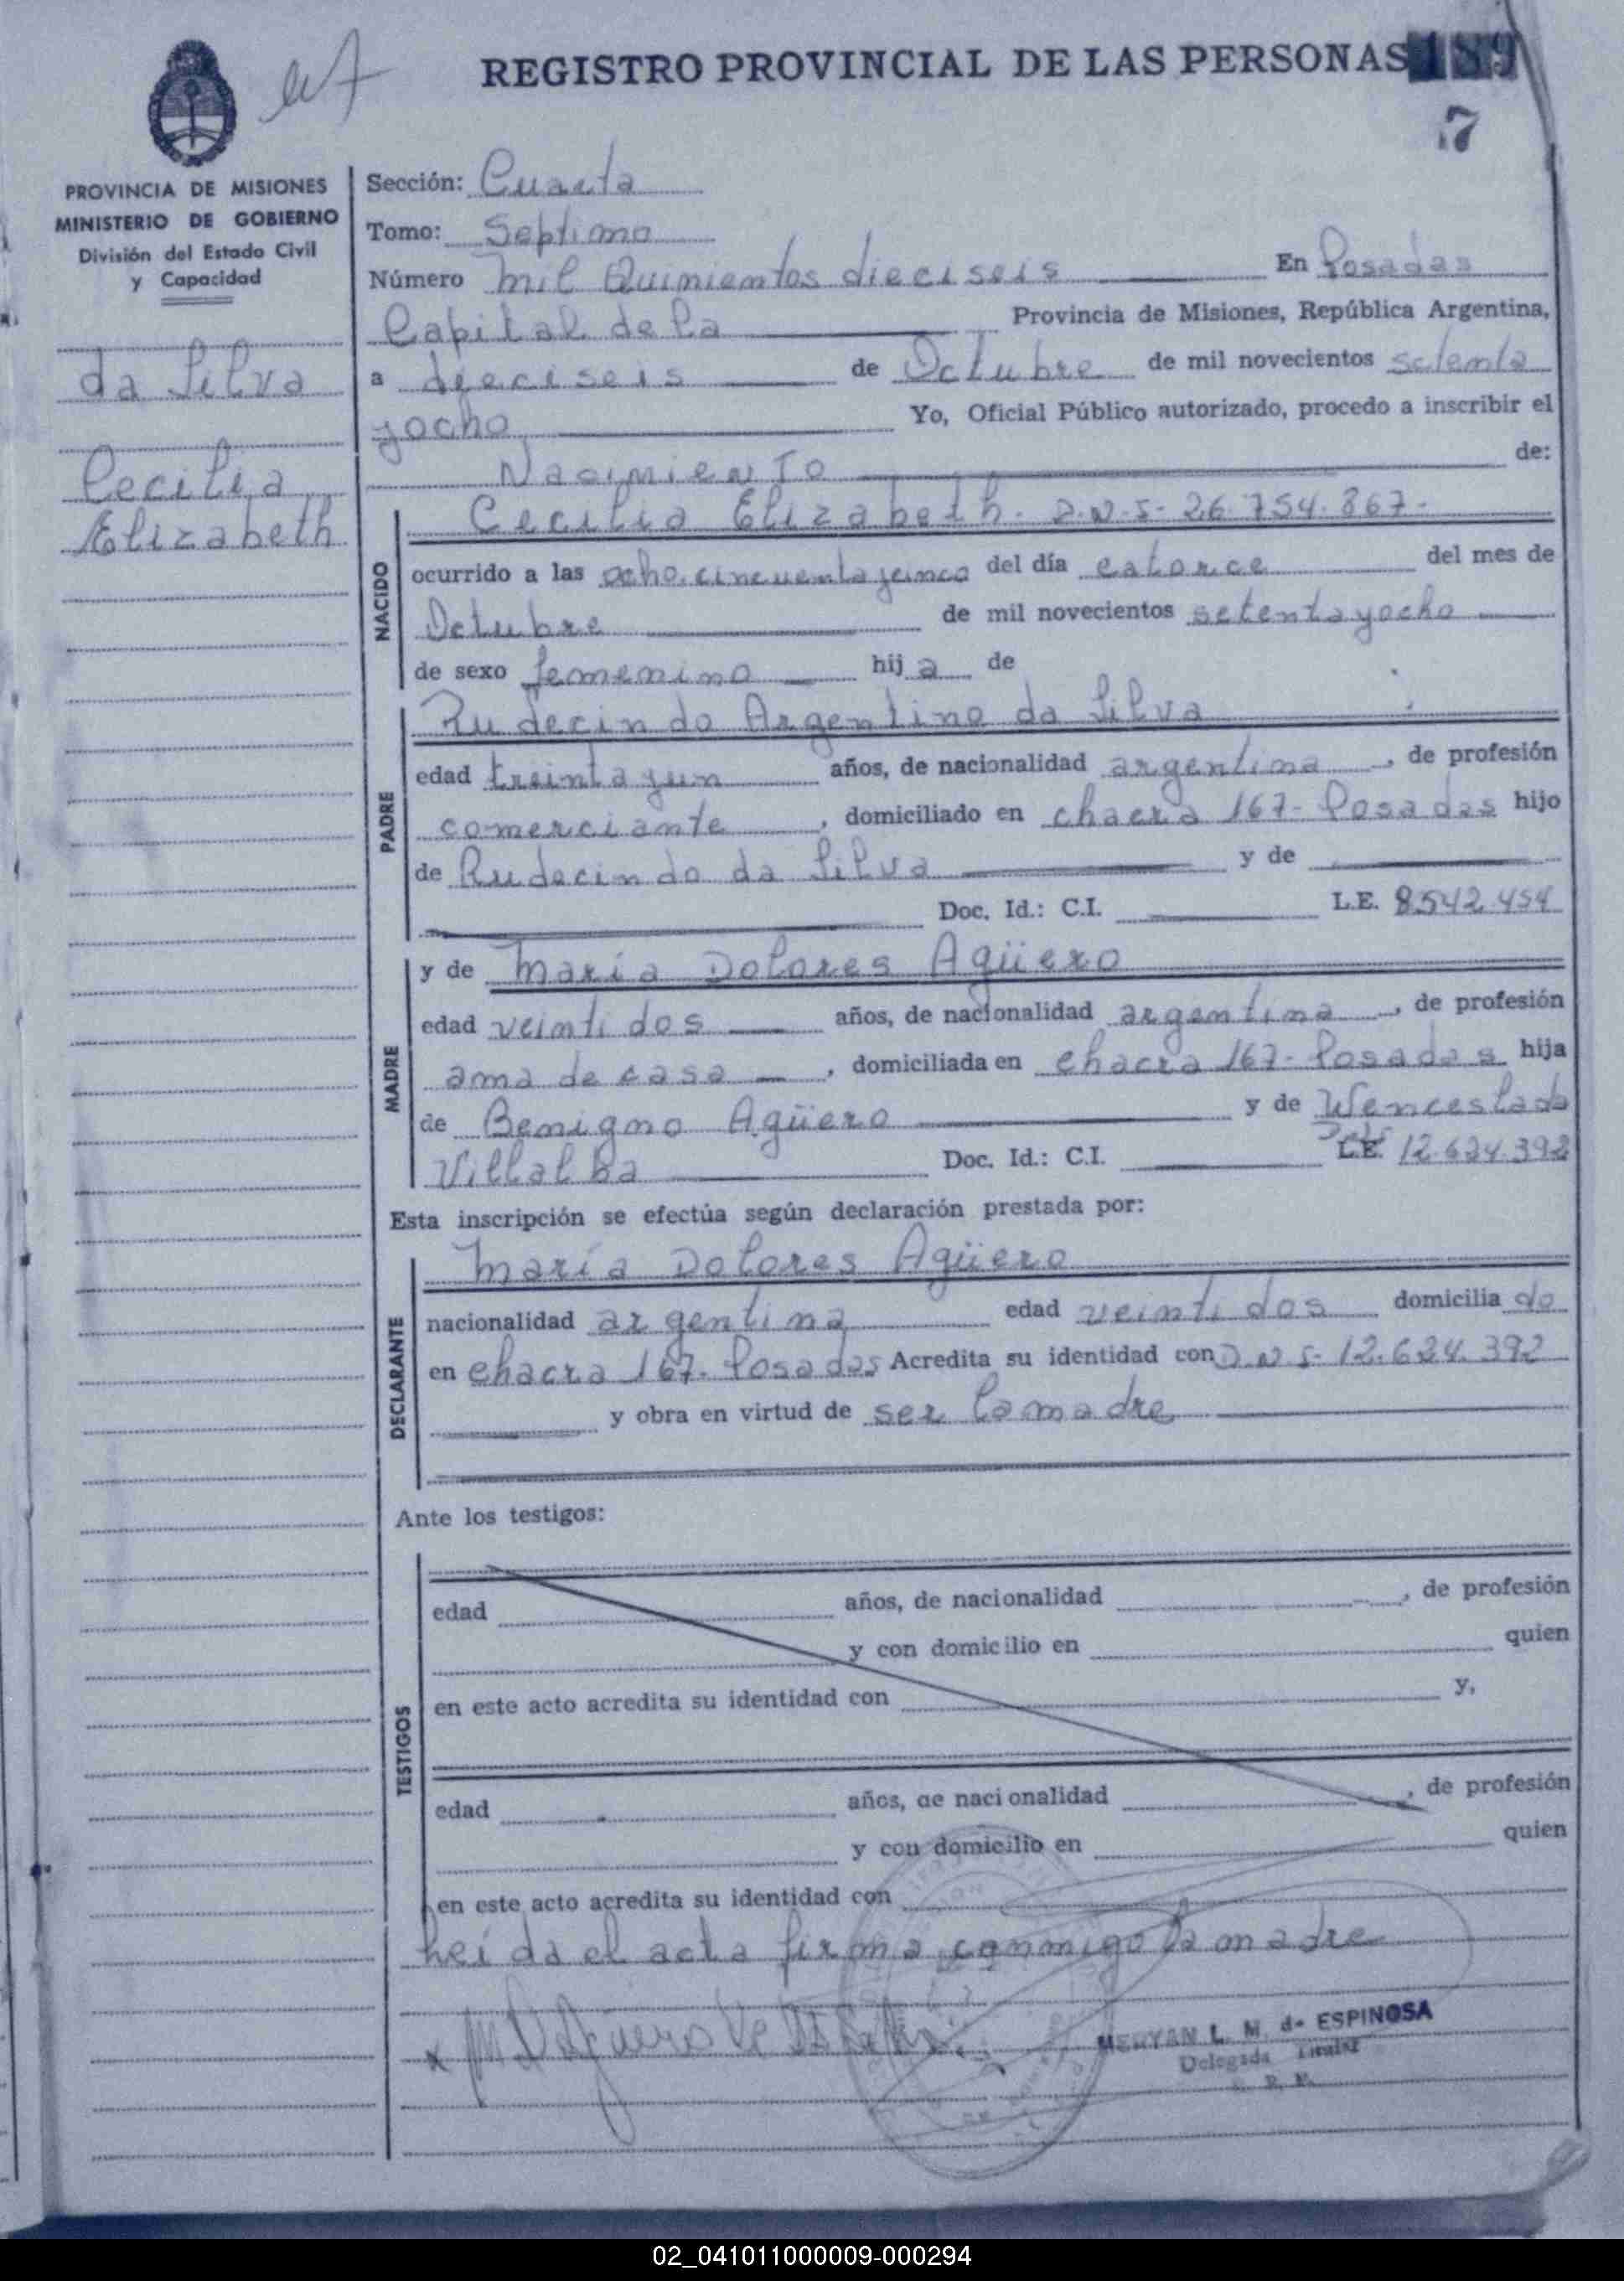 REGISTRO PROVINCIAL DE LAS PERSONAS 189
7
PROVINCIA DE MISIONES
MINISTERIO DE GOBIERNO
División del Estado Civil
y Capacidad
da Silva
Cecilia
Elizabeth
Sección: Cuarta
Tomo: Septimo
Número mil Quinientos dieciseis En Posadas
Capital de la Provincia de Misiones, República Argentina,
a dieciseis de Octubre de mil novecientos setenta
yocho Yo, Oficial Público autorizado, procedo a inscribir el
Nacimiento de:
NACIDO
Cecilia Elizabeth. D.N.I. 26.754.867.
ocurrido a las ocho.cincuentaycinco del día catorce del mes de
Octubre de mil novecientos setentayocho
de sexo femenino hij a de
PADRE
Rudecindo Argentino da Silva
edad treintayun años, de nacionalidad argentina, de profesión
comerciante, domiciliado en chacra 167- Posadas hijo
de Rudecindo da Silva y de
Doc. Id.: C.I. L.E. 8.542.454
MADRE
y de María Dolores Agüero
edad veintidos años, de nacionalidad argentina, de profesión
ama de casa, domiciliada en chacra 167- Posadas hija
de Benigno Agüero y de Wenceslada
Villalba Doc. Id.: C.I. L.E. 12.624.392
Esta inscripción se efectúa según declaración prestada por:
DECLARANTE
María Dolores Agüero
nacionalidad argentina edad veintidos domicilia do
en chacra 167- Posadas Acredita su identidad con D.N.I- 12.624.392
y obra en virtud de ser la madre
Ante los testigos:
TESTIGOS
edad años, de nacionalidad , de profesión
y con domicilio en quien
en este acto acredita su identidad con y,
edad años, de nacionalidad , de profesión
y con domicilio en quien
en este acto acredita su identidad con
Leída el acta firma conmigo la madre
MERYAN L. M. de ESPINOSA
Delegada Titular
R. P.
02_041011000009-000294